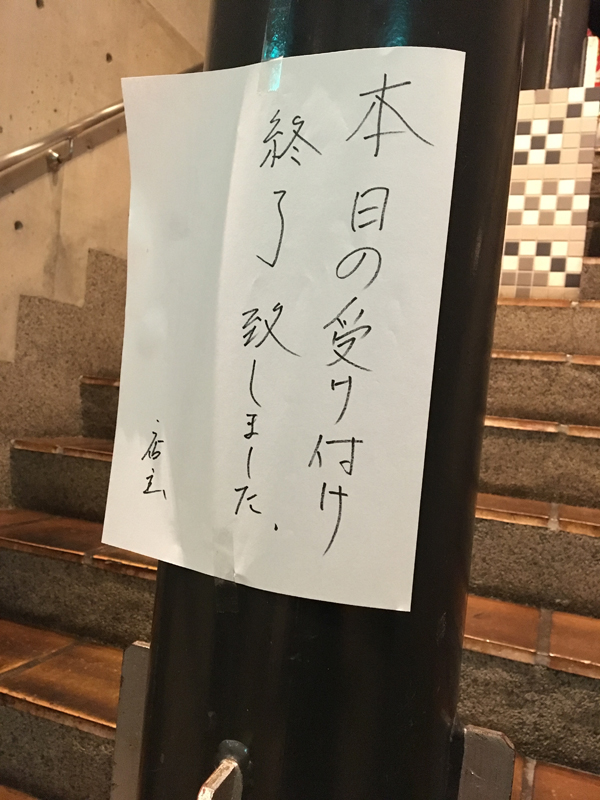 本日の受け付け
終了致しました.
店主